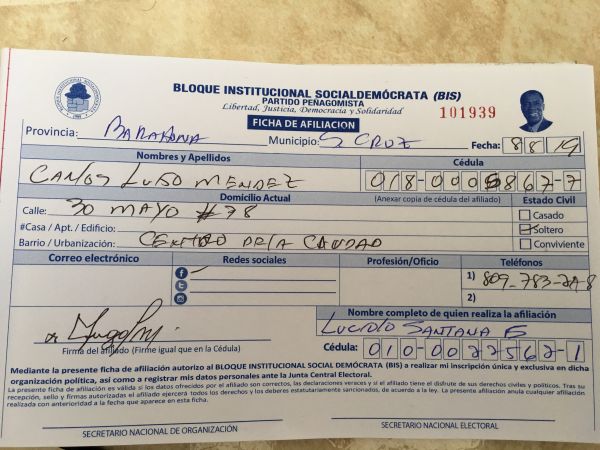 BLOQUE INSTITUCIONAL SOCIALDEMÓCRATA (BIS)
PARTIDO PEÑAGOMISTA
Libertad, Justicia, Democracia y Solidaridad
101939
FICHA DE AFILIACION
Provincia: BARAHONA Municipio: S CRUZ Fecha: 8 8 19
Nombres y Apellidos Cédula
CARLOS LUGO MENDEZ 018-0005867-7
Domicilio Actual (Anexar copia de cédula del afiliado) Estado Civil
Calle: 30 MAYO #78 Casado
#Casa / Apt. / Edificio: Soltero
Barrio / Urbanización: CENTRO DE LA CIUDAD Conviviente
Correo electrónico Redes sociales Profesión/Oficio Teléfonos
1) 809-783-
2)
Nombre completo de quien realiza la afiliación
SANTANA
Firma del afiliado (Firme igual que en la Cédula) Cédula: 010-0022562-1
Mediante la presente ficha de afiliación autorizo al BLOQUE INSTITUCIONAL SOCIAL DEMÓCRATA (BIS) a realizar mi inscripción única y exclusiva en dicha
organización política, así como a registrar mis datos personales ante la Junta Central Electoral.
La presente ficha de afiliación es válida si los datos ofrecidos por el afiliado son correctos, las declaraciones veraces y si el afiliado tiene el disfrute de sus derechos civiles y políticos. Tras su
recepción, sello y firmas autorizadas el afiliado ejercerá todos los derechos y los deberes estatutariamente sancionados, de acuerdo a la ley. La presente afiliación anula cualquier afiliación
realizada con anterioridad a la fecha que aparece en esta ficha.
SECRETARIO NACIONAL DE ORGANIZACIÓN SECRETARIO NACIONAL ELECTORAL